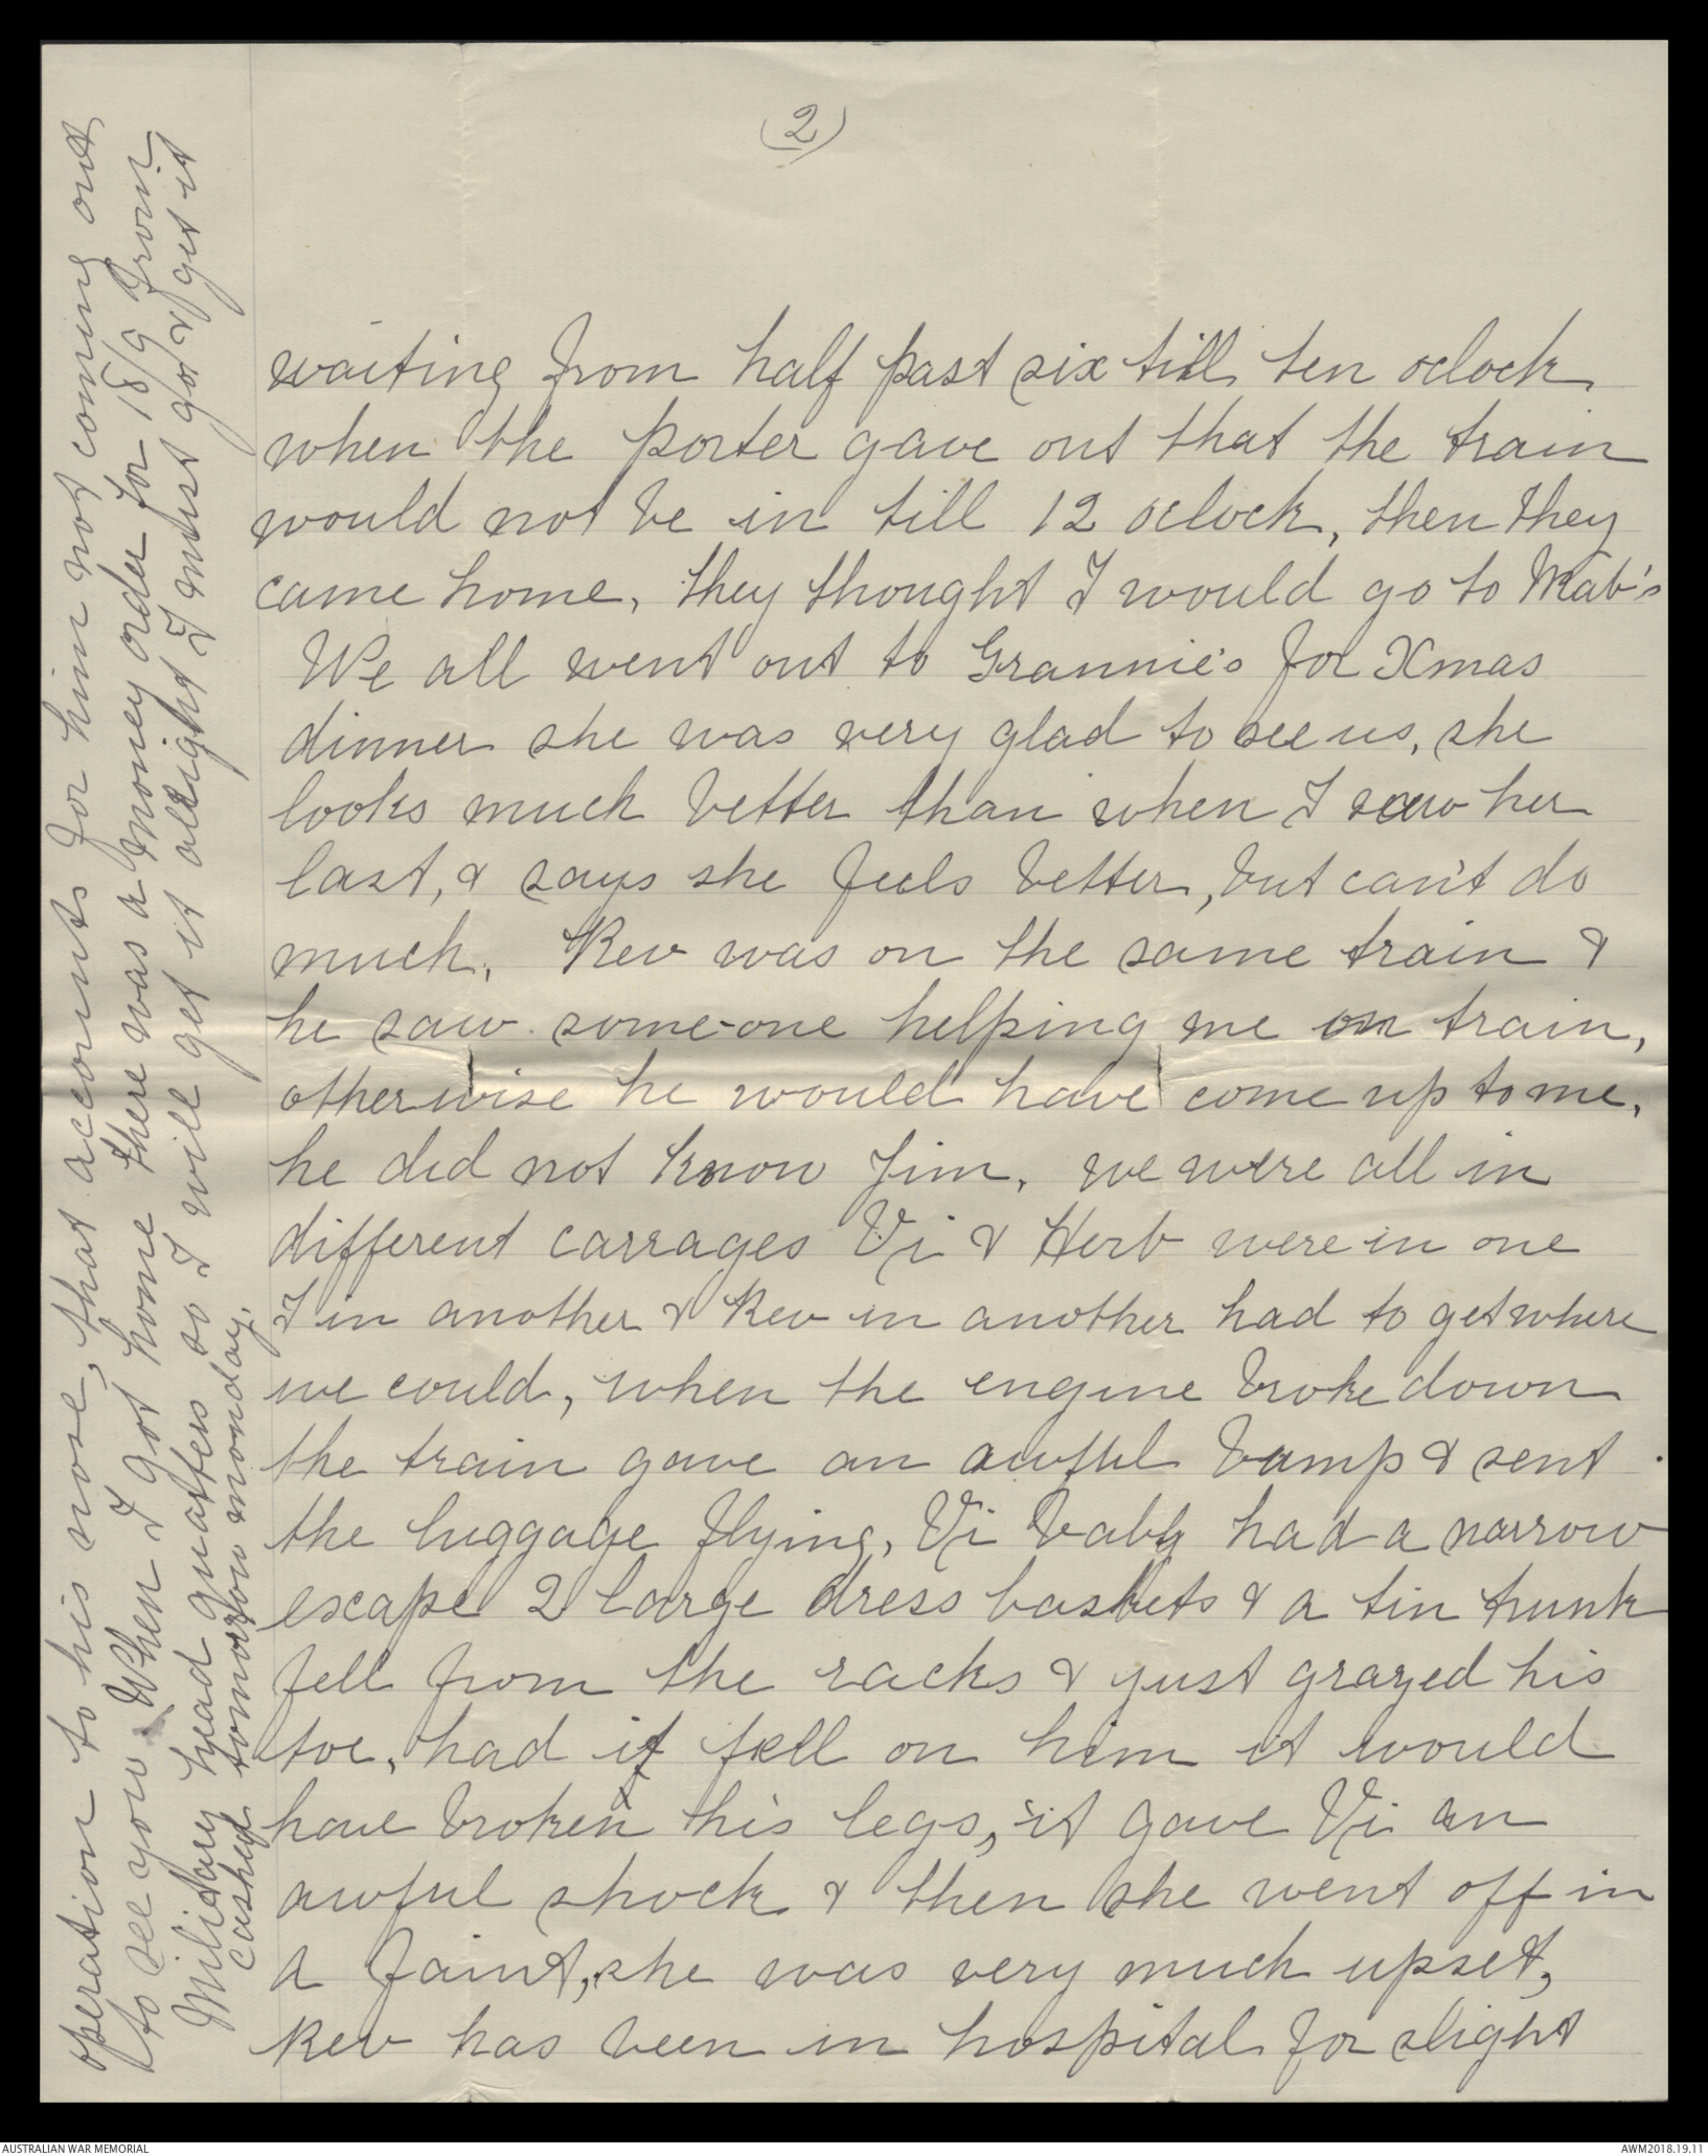 (2)
waiting from half past six till ten oclock
when the porter gave out that the train
would not be in till 12 oclock, then they
came home, they thought I would go to Mab's
We all went out to Grannie's for Xmas
dinner she was very glad to see us, she
looks much better than when I saw her
last, & says she feels better, but can't do
much. Rev was on the same train &
he saw some-one helping me on train,
otherwise he would have come up to me,
he did not know Jim, we were all in
different carrages Vi & Herb were in one
I in another & Rev in another had to get where
we could, when the engine broke down
the train gave an awful bump & sent
the luggage flying, Vi baby had a narrow
escape 2 large dress baskets & a tin trunk
fell from the racks & just grazed his
toe, had it fell on him it would
have broken his legs, it gave Vi an
awful shock & then she went off in
a faint, she was very much upset,
Rev has been in hospital for slight
operation to his nose, that accounts for him not coming out
to see you. When I got home there was a money order for 18/9 from
Military head quatters so I will get it allright I must go & get it
cashed tomorrow monday.
AUSTRALIAN WAR MEMORIAL
AWM2018.19.11